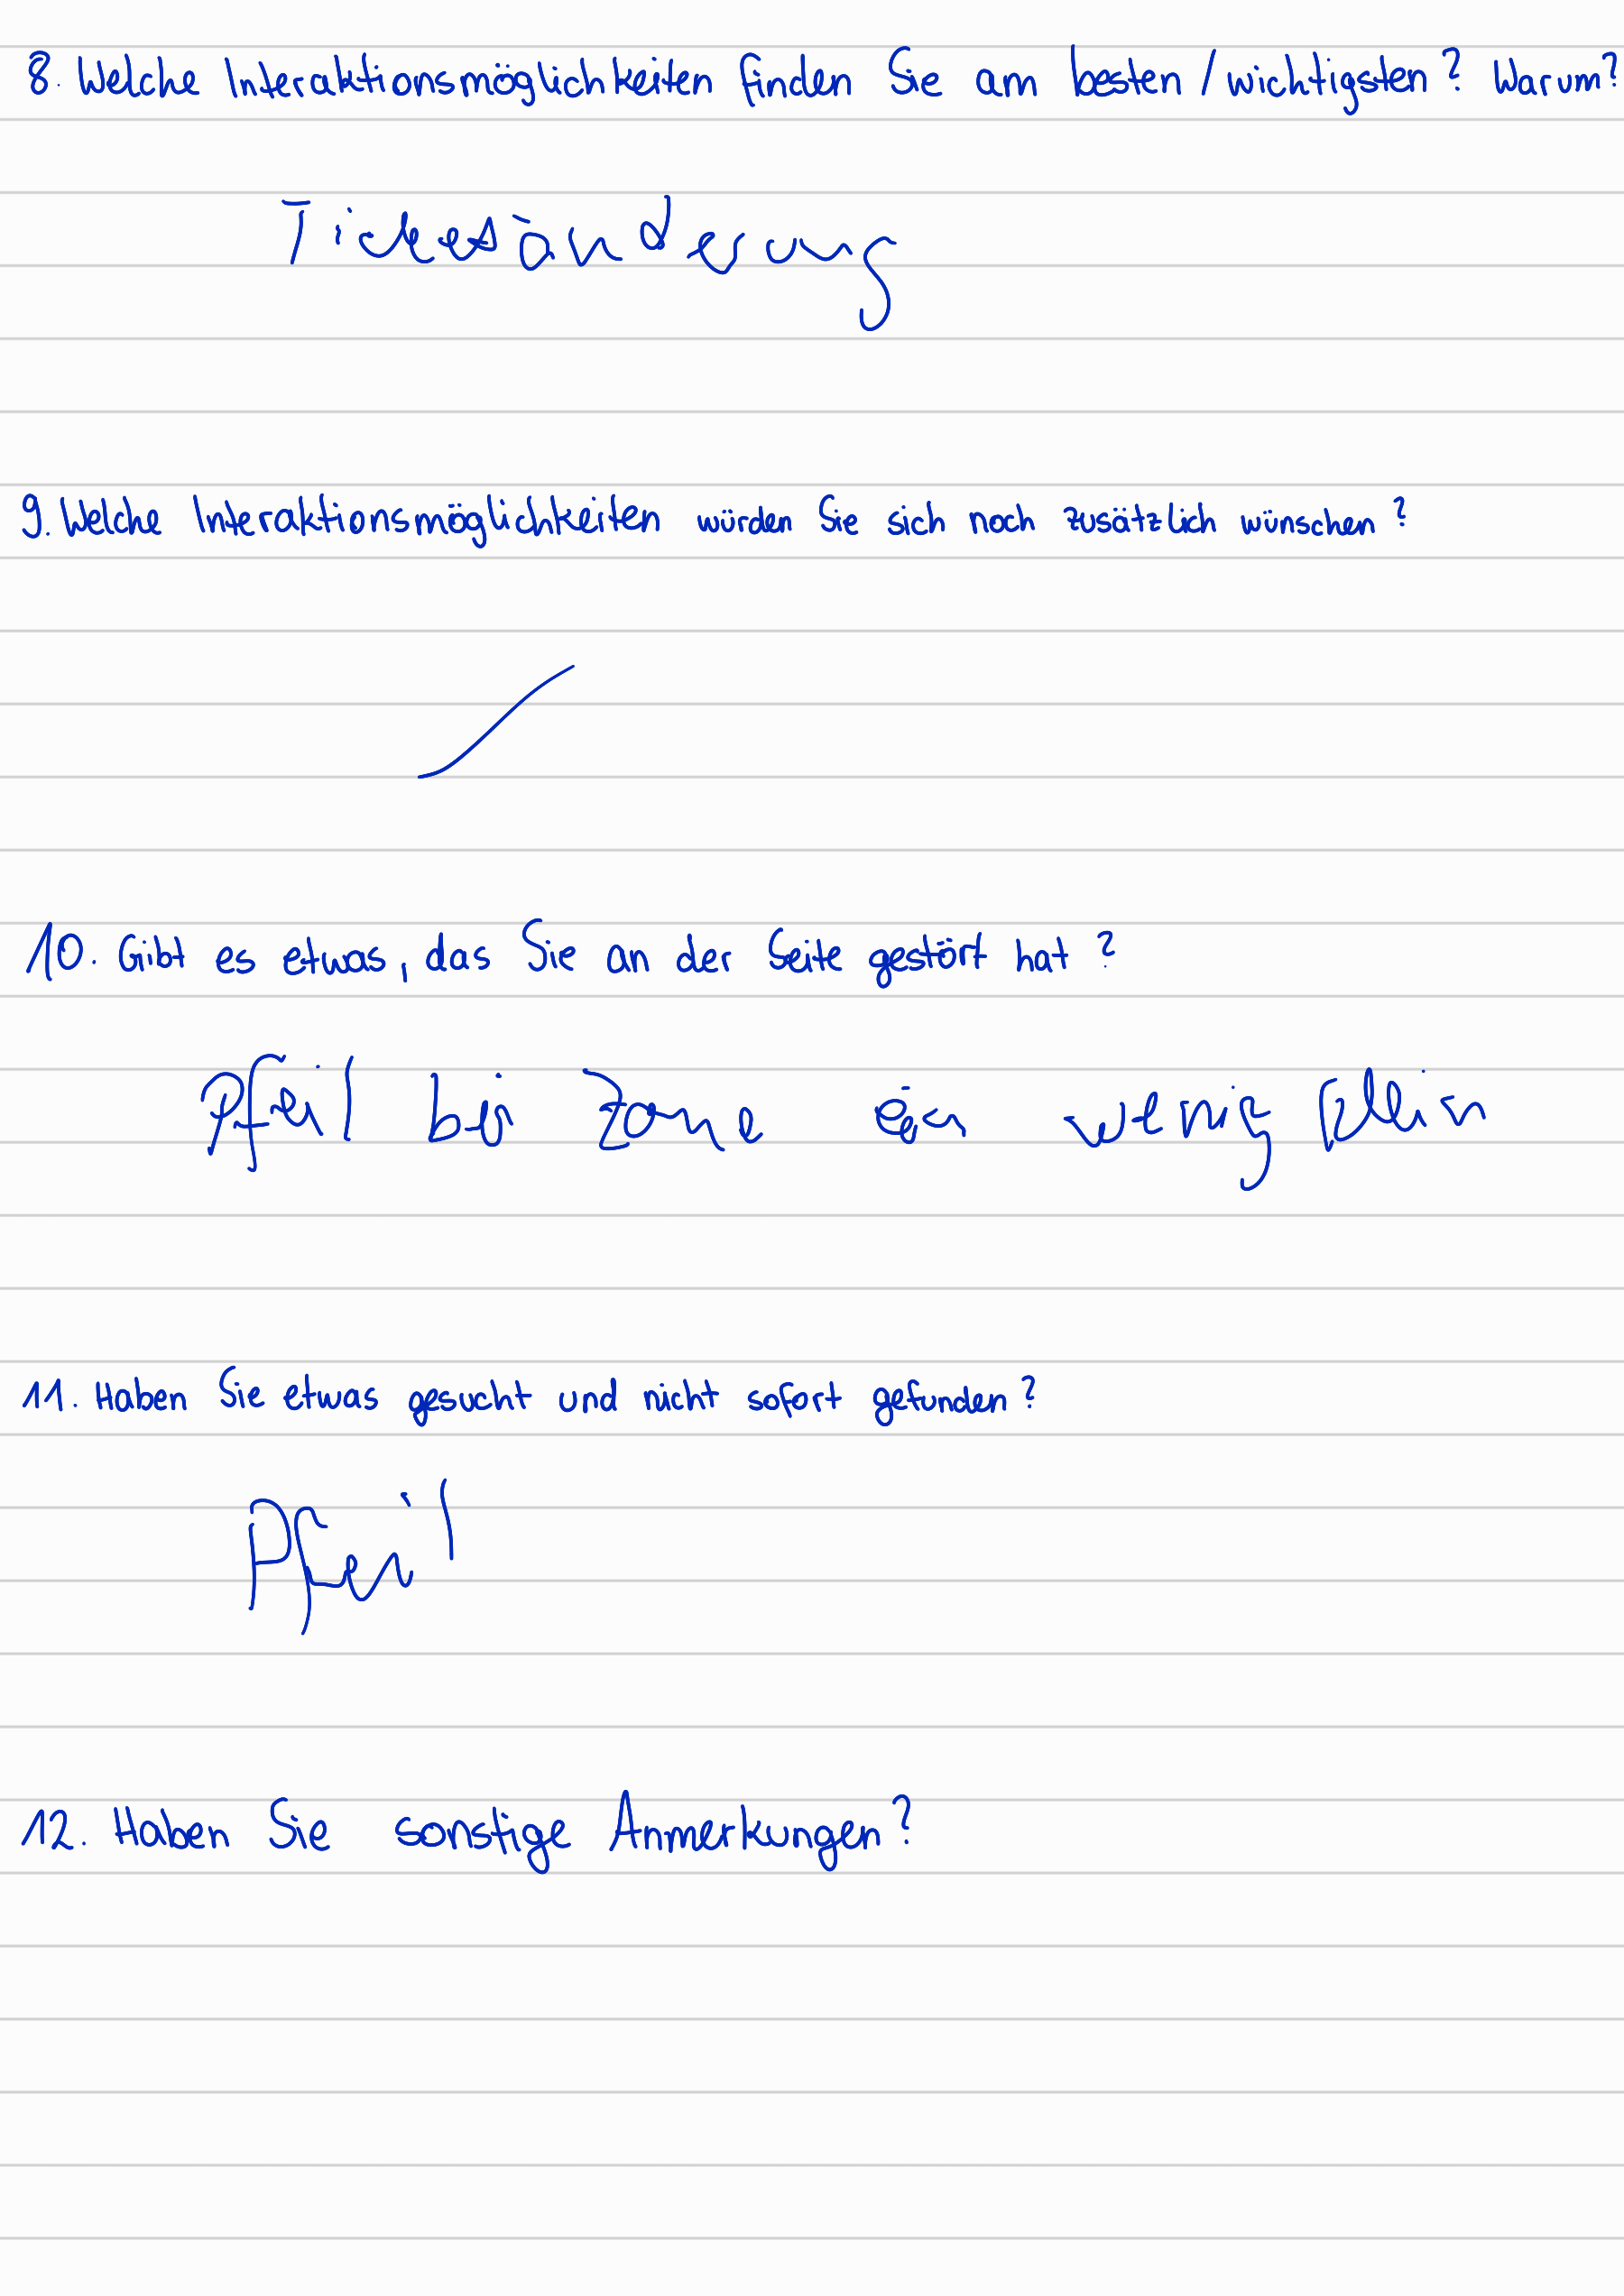 8. Welche Interaktionsmöglichkeiten finden Sie am besten / wichtigsten? Warum?
Ticketänderung
9. Welche Interaktionsmöglichkeiten würden Sie sich noch zusätzlich wünschen?
10. Gibt es etwas, das Sie an der Seite gestört hat?
Pfeil bei Zone ein wenig klein
11. Haben Sie etwas gesucht und nicht sofort gefunden?
Pfeil
12. Haben Sie sonstige Anmerkungen?